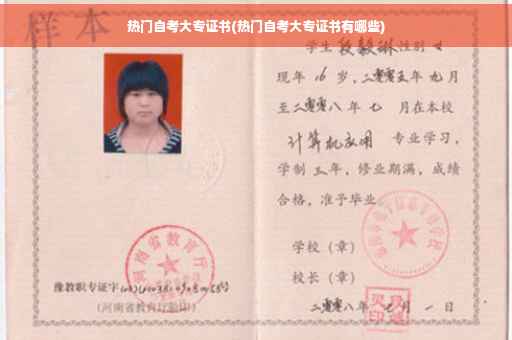 热门自考大专证书(热门自考大专证书有哪些)
样本
学生段毅琳性别女
现年16岁，二零零五年九月
至二零零八年七月在本校
计算机应用 专业学习，
学制三年，修业期满，成绩
合格，准予毕业
学校（章）
校长（章）
二零零八年七月一日
河南省教育厅
豫教职专证字
(河南省教育厅验印)